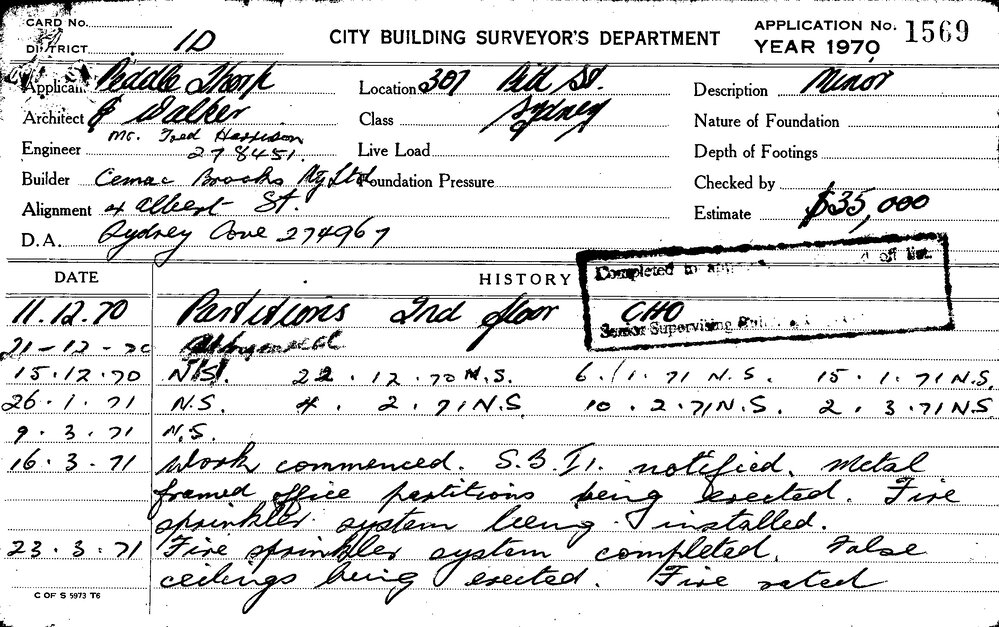 CARD No.
DISTRICT 1D
CITY BUILDING SURVEYOR'S DEPARTMENT
APPLICATION No. 1569
YEAR 1970
Applicant Peddle Thorp
Architect & Walker
Mc. Fred Harrison
Engineer 278451.
Builder Cemac Brooks Pty Ltd
Alignment 4 Albert St.
D.A. Sydney Cove 274967
Location 307 Pitt St.
Class Sydney
Live Load
Foundation Pressure
Description Minor
Nature of Foundation
Depth of Footings
Checked by
Estimate $35,000
Completed to off list.
Senior Supervising
DATE HISTORY
11.12.70 Partitions 2nd floor CHO
21-12-70
15.12.70 N.S. 22.12.70 N.S. 6.1.71 N.S. 15.1.71 N.S.
26.1.71 N.S. 4.2.71 N.S. 10.2.71 N.S. 2.3.71 N.S.
9.3.71 N.S.
16.3.71 Work commenced. S.B.I. notified. Metal
framed office partitions being erected. Fire
sprinkler system being installed.
23.3.71 Fire sprinkler system completed. False
ceilings being erected. Fire rated
C OF S 5973 T6